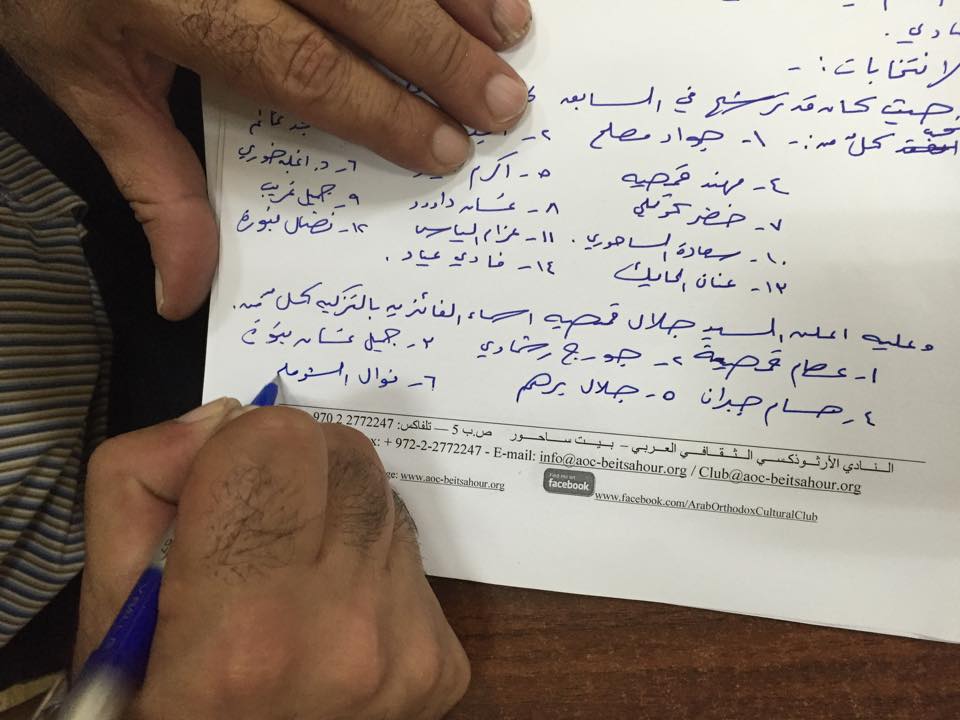 ادي.
لانتخابات :-
حيث كان قد ترشح في السابعه
كل من :- ١- جواد مصلح ٢-
٤- مهند قمصيه ٥- اكرم ٦- د. اغلب خوري
٧- خضر كوكلي ٨- غسان داوود ٩- جميل غريب
١٠- سعادة الساحوري. ١١- عزام الياس ١٢- نضال بنورة
١٣- عنان الحايك ١٤- فادي عياد.
وعليه اعلن السيد جلال قمصيه اسماء الفائزين بالتزكيه كل من.
١- عصام قمصية ٢- جورج رشماوي ٣- جميل غسان بنورة
٤- حسام جبران ٥- جلال برهم ٦- نوال
النادي الأرثوذكسي الثقافي العربي – بيت ساحور ص.ب 5 — تلفاكس: 2772247 2 970
ax: + 972-2-2772247 - E-mail: info@aoc-beitsahour.org / Club@aoc-beitsahour.org
ge: www.aoc-beitsahour.org
Find me on facebook
www.facebook.com/ArabOrthodoxCulturalClub